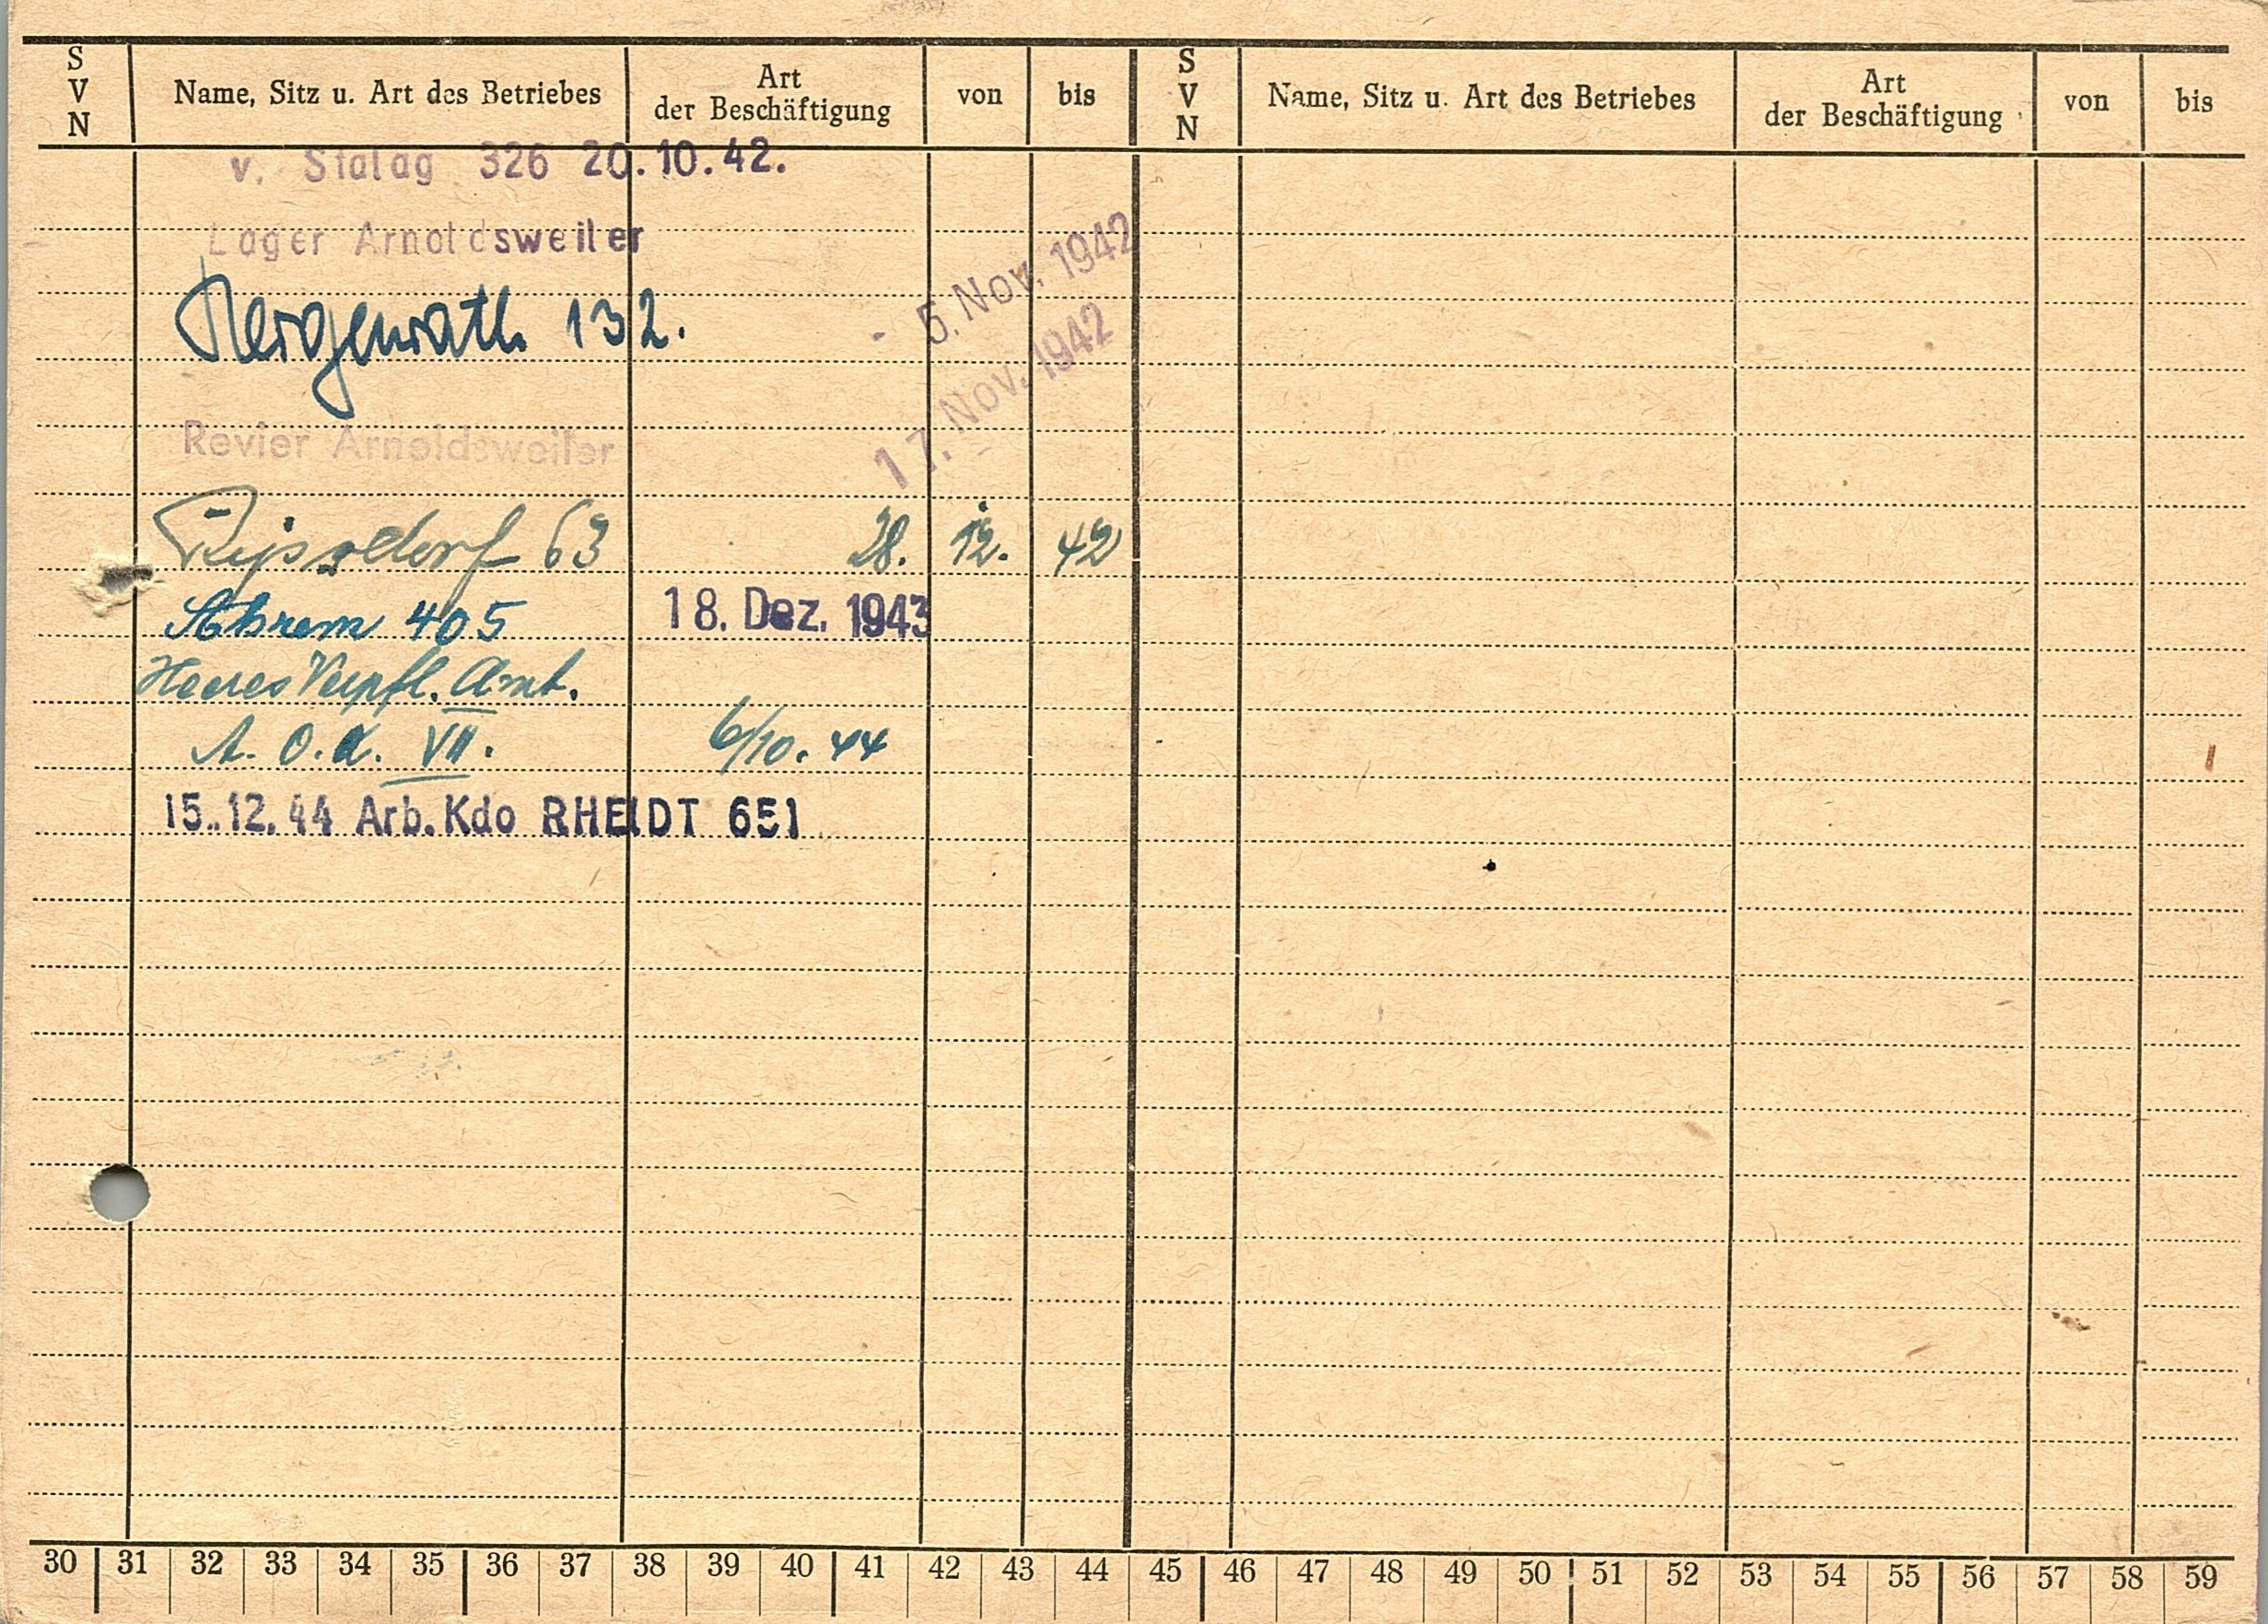 S V N Name, Sitz u. Art des Betriebes Art der Beschäftigung von bis S V N Name, Sitz u. Art des Betriebes Art der Beschäftigung von bis
v. Stalag 326 20.10.42.
Lager Arnoldsweiler
5. Nov. 1942
Hergenrath 132.
17. Nov. 1942
Revier Arnoldsweiler
63 28. 12. 42
Ahrem 405 18. Dez. 1943
Heeres Verpfl. Amt.
A. O. K. VII. 6/10. 44
15.12.44 Arb. Kdo RHEIDT 651
30 31 32 33 34 35 36 37 38 39 40 41 42 43 44 45 46 47 48 49 50 51 52 53 54 55 56 57 58 59